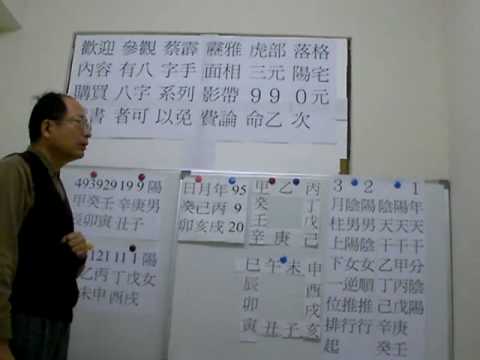 歡迎 參觀 蔡霹 靂雅 虎部 落格
內容 有八 字手 面相 三元 陽宅
購買 八字 系列 影帶 990元
書 者可 以免 費論 命乙 次
49 39 29 19 9 陽
甲癸壬 辛庚男
辰卯寅 丑子
21 11 1 陽
乙丙 丁戊女
未申 酉戌
日月年 95
癸己丙 9
卯亥戌 20
甲乙丙
癸 丁
壬 戊
辛庚己
巳午未申
辰 酉
卯 戌
寅丑子亥
1
年天干分陰陽
陽天干甲丙戊庚壬
陰天干乙丁己辛癸
2
陽男陰女順推行
陰男陽女逆推行
3
月柱上下一位排起